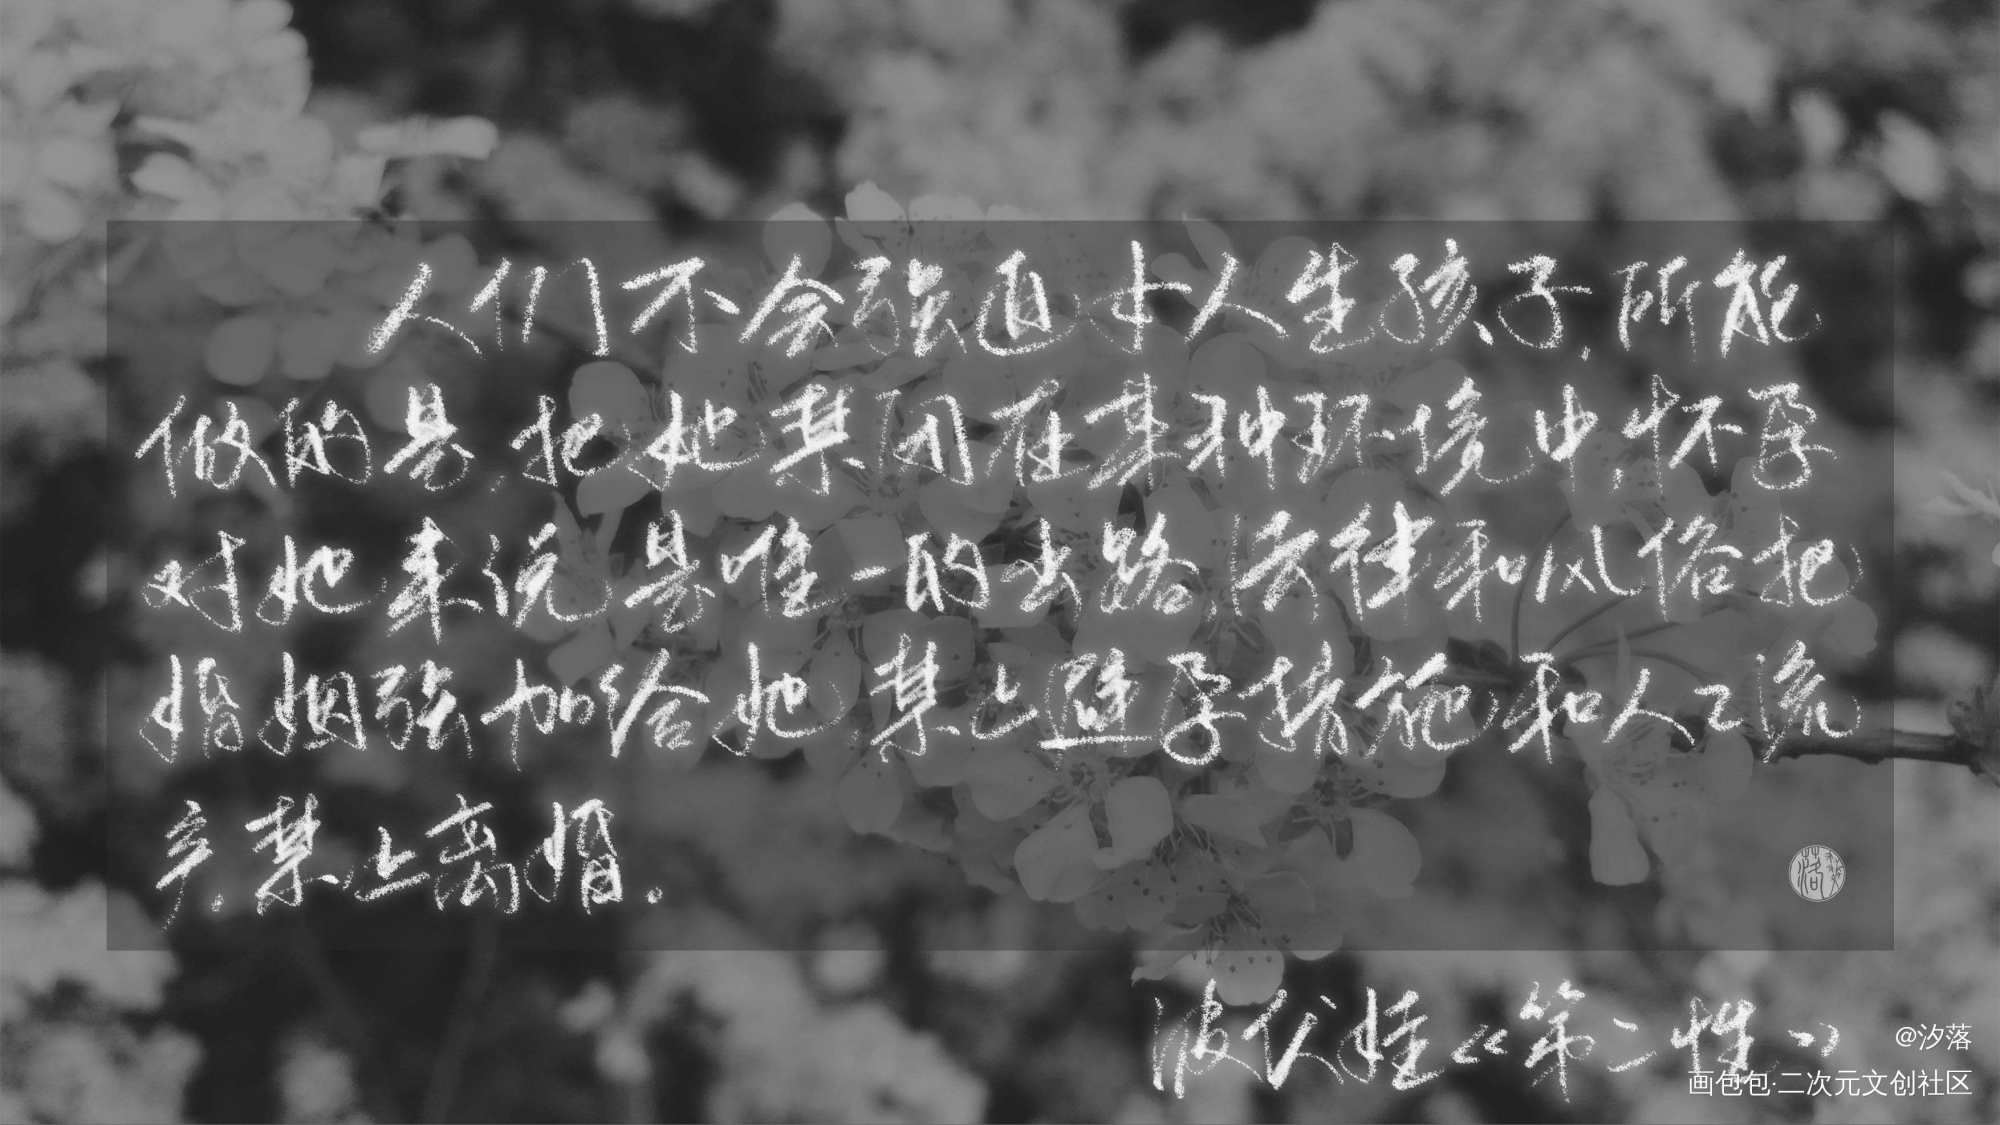 人们不会强迫女人生孩子,所能
做的是,把她禁闭在某种环境中,怀孕
对她来说是唯一的出路,法律和风俗把
婚姻强加给她,禁止避孕措施和人工流
产,禁止离婚.
波伏娃《第二性》
@汐落
画包包·二次元文创社区